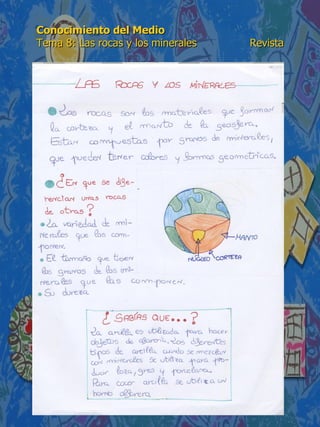 Conocimiento del Medio
Tema 8: Las rocas y los minerales Revista
LAS ROCAS Y LOS MINERALES
Las rocas son los materiales que forman
la corteza y el manto de la geosfera.
Estan compuestas por granos de minerales,
que pueden tener colores y formas geometricas.
¿En que se dife-
rencian unas rocas
de otras?
La variedad de mi-
nerales que las com-
ponen.
El tamaño que tienen
los granos de los mi-
nerales que las componen.
Su dureza
MANTO
NÚCLEO CORTEZA
¿SABÍAS QUE...?
La arcilla es utilizada para hacer
objetos de alfarería. Los diferentes
tipos de arcilla cuando se mezclan
con minerales se utiliza para pro-
ducir loza, gres y porcelana.
Para cocer arcilla se utiliza un
horno alfarero.